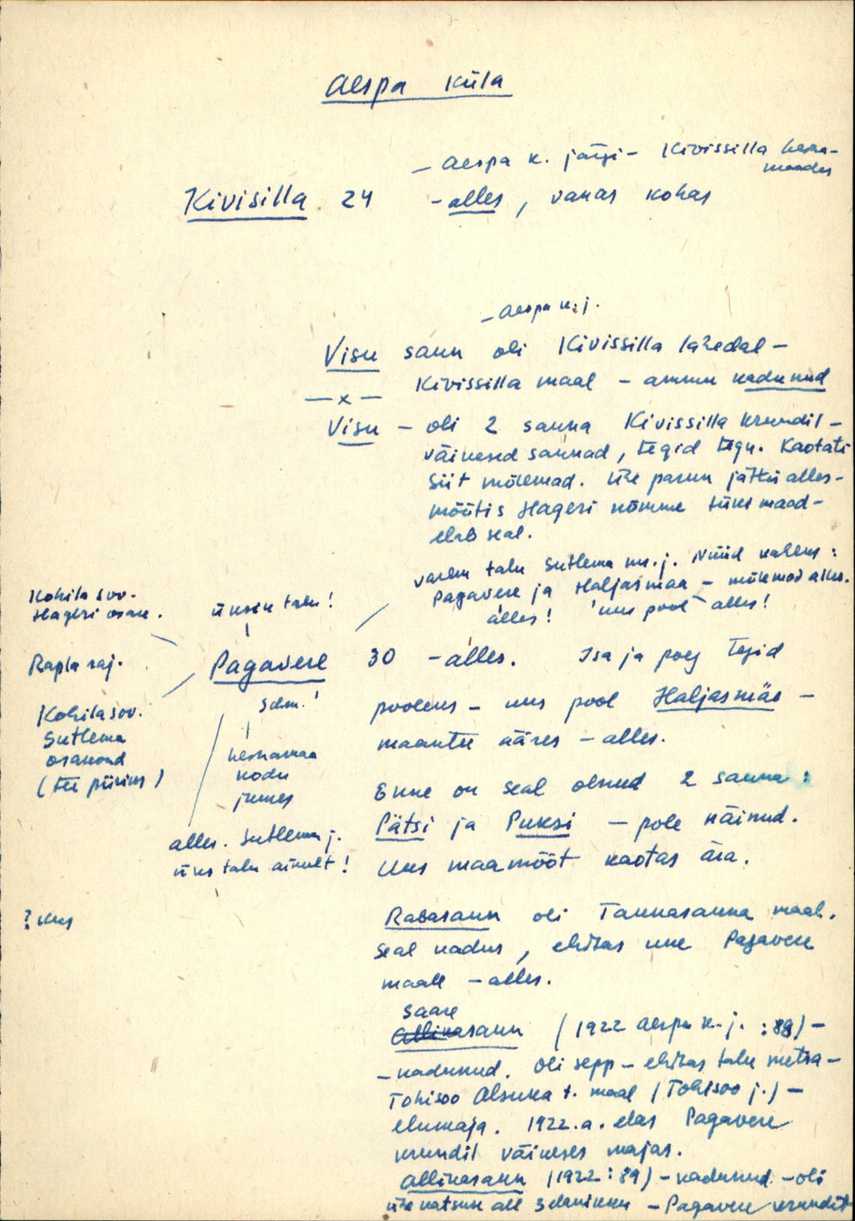 Aespa küla
– Aespa k. järgi – Kivissilla heina-
maades
Kivisilla 24 – alles, vanas kohas
– Aespa k. j.
Visu saun oli Kivissilla lähedal –
Kivissilla maal – ammu kadunud
— x —
Visu – oli 2 sauna Kivissilla krundil –
väikesed saunad, tegid tegu. Kaotati
siit mõlemad. Ühe parun jättis alles –
mõõtis Hageri nõmme tüki maad –
elab seal.
varem talu Sutlema m. j. Nüüd kaheks:
Pagavere ja Haljasmaa – mõlemad alles.
alles! uus pool alles!
Kohila sov.
Hageri osak.
üksik talu!
Rapla raj.
Pagavere 30 – alles. Isa ja poeg tegid
pooleks – uus pool Haljasmäe –
maantee ääres – alles.
Kohila sov.
Sutlema
osakond
(tee piiriks)
Sdm.!
heinamaa
kodu
juures
alles. Sutlema j.
üks talu ainult!
Enne on seal olnud 2 sauna:
Pätsi ja Puksi – pole näinud.
Uus maamõõt kaotas ära.
? kus
Rabasaun oli Tannasauna maal.
Seal kadus, ehitas uue Pagavere
maale – alles.
Saare
Allikasaun (1922 Aespa k. j. : 89) –
– kadunud. Oli sepp – ehitas talu metsa –
Tohisoo Alsuka t. maal (Tohisoo j.) –
elumaja. 1922. a. elas Pagavere
krundil väikeses majas.
Allikasaun (1922 : 89) – kadunud – oli
ühe katuse all – Pagavere krundil